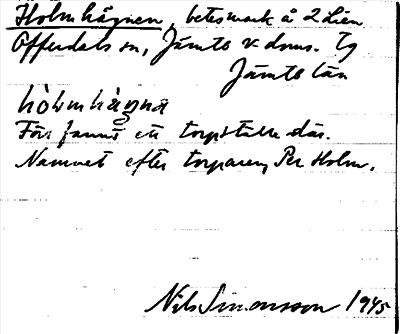 Holmhägnen, betesmark å 2 Lien
Offerdals sn, Jämts v. doms. tg
Jämts län
hòlmhàgna
Förr fanns ett torpställe där.
Namnet efter torparen Per Holm.
Nils Simonsson 1945